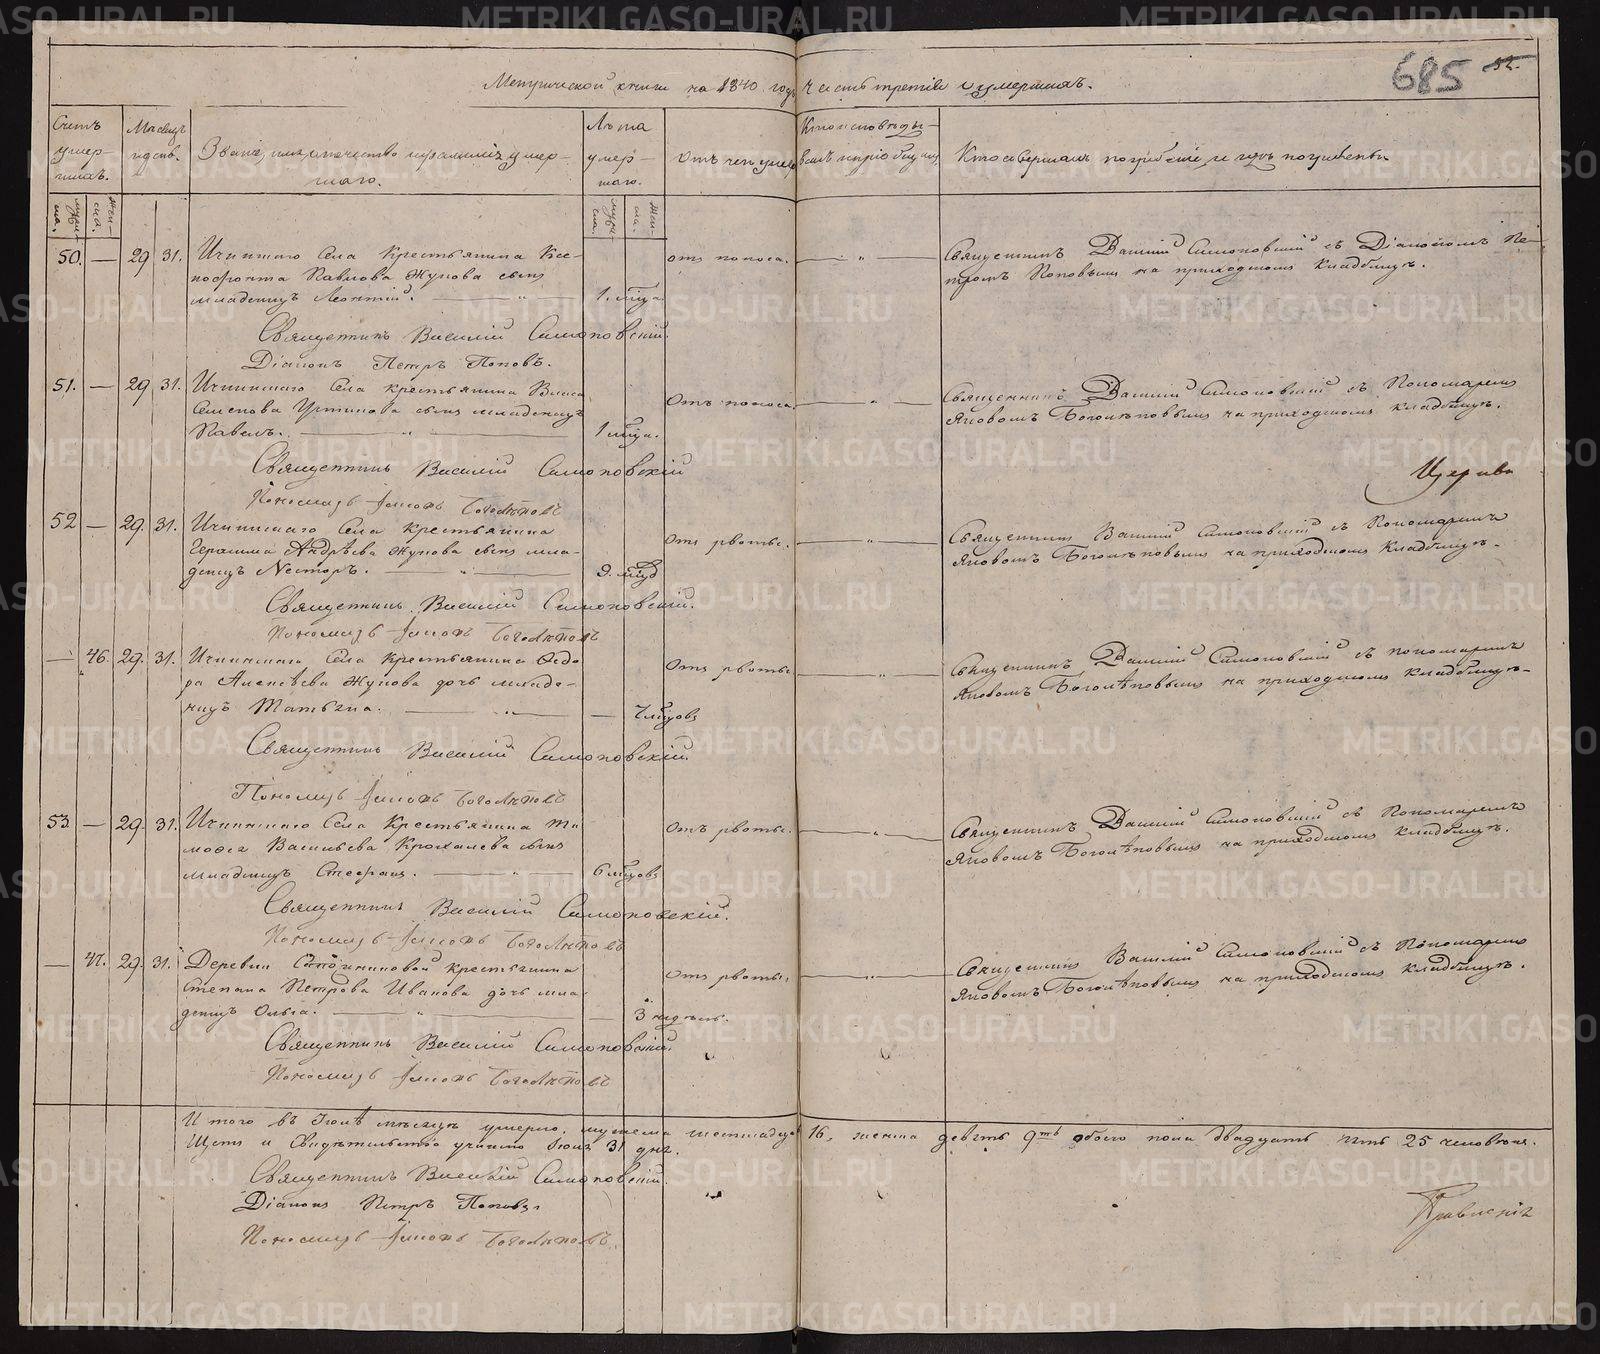 Метрической книги на 1840 годъ часть третія о умершихъ.
685 52.
Счетъ умер-шихъ.
Мѣсяцъ и день.
Званіе, имя, отечество и фамилія умер-
шаго.
Лѣта умер-шаго.
Отъ чего умеръ
Кто исповѣды-валъ и пріобщалъ
Кто совершалъ погребеніе, и гдѣ погребены
50. — 29 31. села Крестьянина Ксе-
нофонта Павлова Жукова сынъ
младенецъ Леонтій. 1. мѣца. отъ поноса.
Священникъ Василій Симоновскій съ Діакономъ Пе-
тромъ Поповымъ на приходскомъ кладбищѣ.
Священникъ Василій Симоновскій.
Діаконъ Петръ Поповъ.
51. — 29 31. села крестьянина
Семенова сынъ младенецъ
Павелъ. 1 мѣца. Отъ поноса.
Священникъ Василій Симоновскій съ Пономаремъ
Яковомъ Боголѣповымъ на приходскомъ кладбищѣ.
Священникъ Василій Симоновскій
Пономарь Яковъ Боголѣповъ
52 — 29. 31. Села крестьянина
Герасима Андрѣева Жукова сынъ мла-
денецъ Несторъ. Отъ рвоты.
Священникъ Василій Симоновскій съ Пономаремъ
Яковомъ Боголѣповымъ на приходскомъ кладбищѣ.
Священникъ Василій Симоновскій.
Пономарь Яковъ Боголѣповъ
— 46. 29. 31. Села крестьянина Ѳедо-
ра Алексѣева Жукова дочь младе-
нецъ Татьяна. — 7 мѣцовъ Отъ рвоты
Священникъ Василій Симоновскій съ пономаремъ
Яковомъ Боголѣповымъ на приходскомъ кладбищѣ.
Священникъ Василій Симоновскій.
Пономарь Яковъ Боголѣповъ
53. — 29. 31. Села Крестьянина Ти-
моѳея Васильева Крохалева сынъ
младенецъ Стефанъ. 6 мѣцовъ Отъ рвоты.
Священникъ Василій Симоновскій съ Пономаремъ
Яковомъ Боголѣповымъ на приходскомъ кладбищѣ.
Священникъ Василій Симоновскій.
Пономарь Яковъ Боголѣповъ
— 47. 29. 31. Деревни крестьянина
Степана Петрова Иванова дочь мла-
денецъ Ольга. — 3 недѣль. Отъ рвоты.
Священникъ Василій Симоновскій съ Пономаремъ
Яковомъ Боголѣповымъ на приходскомъ кладбищѣ.
Священникъ Василій Симоновскій.
Пономарь Яковъ Боголѣповъ
Итого въ Іюлѣ мѣсяцѣ умерло, мужеска шестнадцать 16, женска девять 9ть обоего пола двадцать пять 25 человѣкъ.
и Свидѣтельство учинено Іюля 31 дня.
Священникъ Василій Симоновскій.
Діаконъ Петръ Поповъ.
Пономарь Яковъ Боголѣповъ.
METRIKI.GASO-URAL.RU